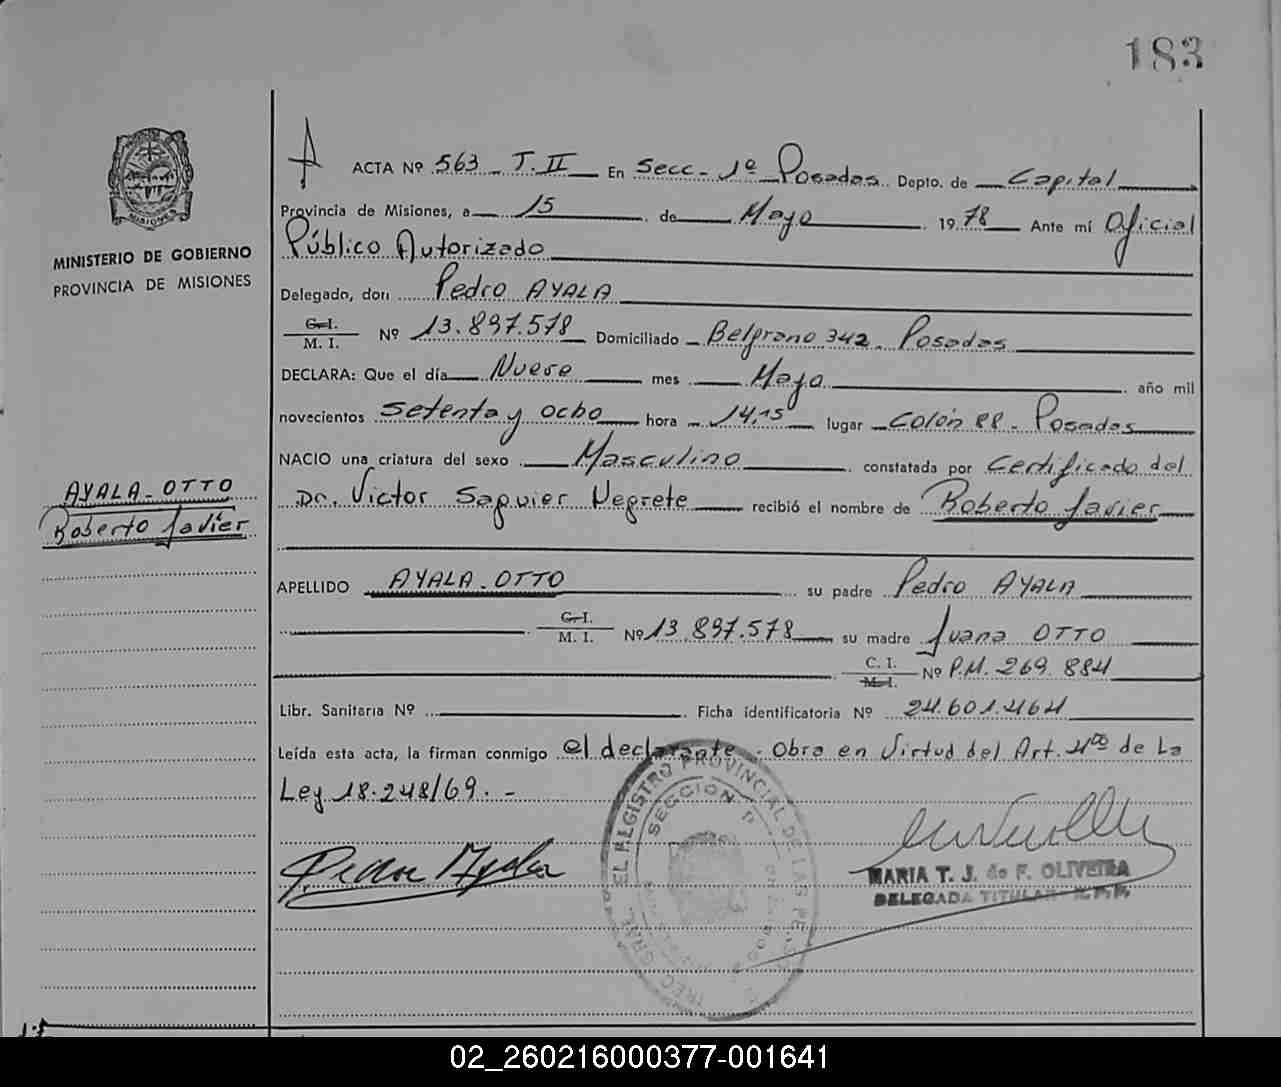 183
ACTA Nº 563 - T. II En Secc. 1ª Posadas Depto. de Capital
Provincia de Misiones, a 15 de Mayo 1978 Ante mí Oficial
Público Autorizado
MINISTERIO DE GOBIERNO
PROVINCIA DE MISIONES
Delegado, don Pedro AYALA
C. I.
M. I. Nº 13.897.578 Domiciliado Belgrano 342 - Posadas
DECLARA: Que el día Nueve mes Mayo año mil
novecientos setenta y ocho hora 14,15 lugar Colón 88 - Posadas
NACIO una criatura del sexo Masculino constatada por Certificado del
Dr. Victor Saguier Negrete recibió el nombre de Roberto Javier
AYALA - OTTO
Roberto Javier
APELLIDO AYALA - OTTO su padre Pedro AYALA
C. I.
M. I. Nº 13.897.578 su madre Juana OTTO
C. I.
M. I. Nº P.M. 269.884
Libr. Sanitaria Nº Ficha identificatoria Nº 24.601.464
Leída esta acta, la firman conmigo el declarante. Obra en Virtud del Art. 4to de La
Ley 18.248/69. -
Pedro Ayala
REGISTRO PROVINCIAL DE LAS
SECCION
MARIA T. J. de F. OLIVEIRA
DELEGADA TITULAR - R.P.P.
02_260216000377-001641